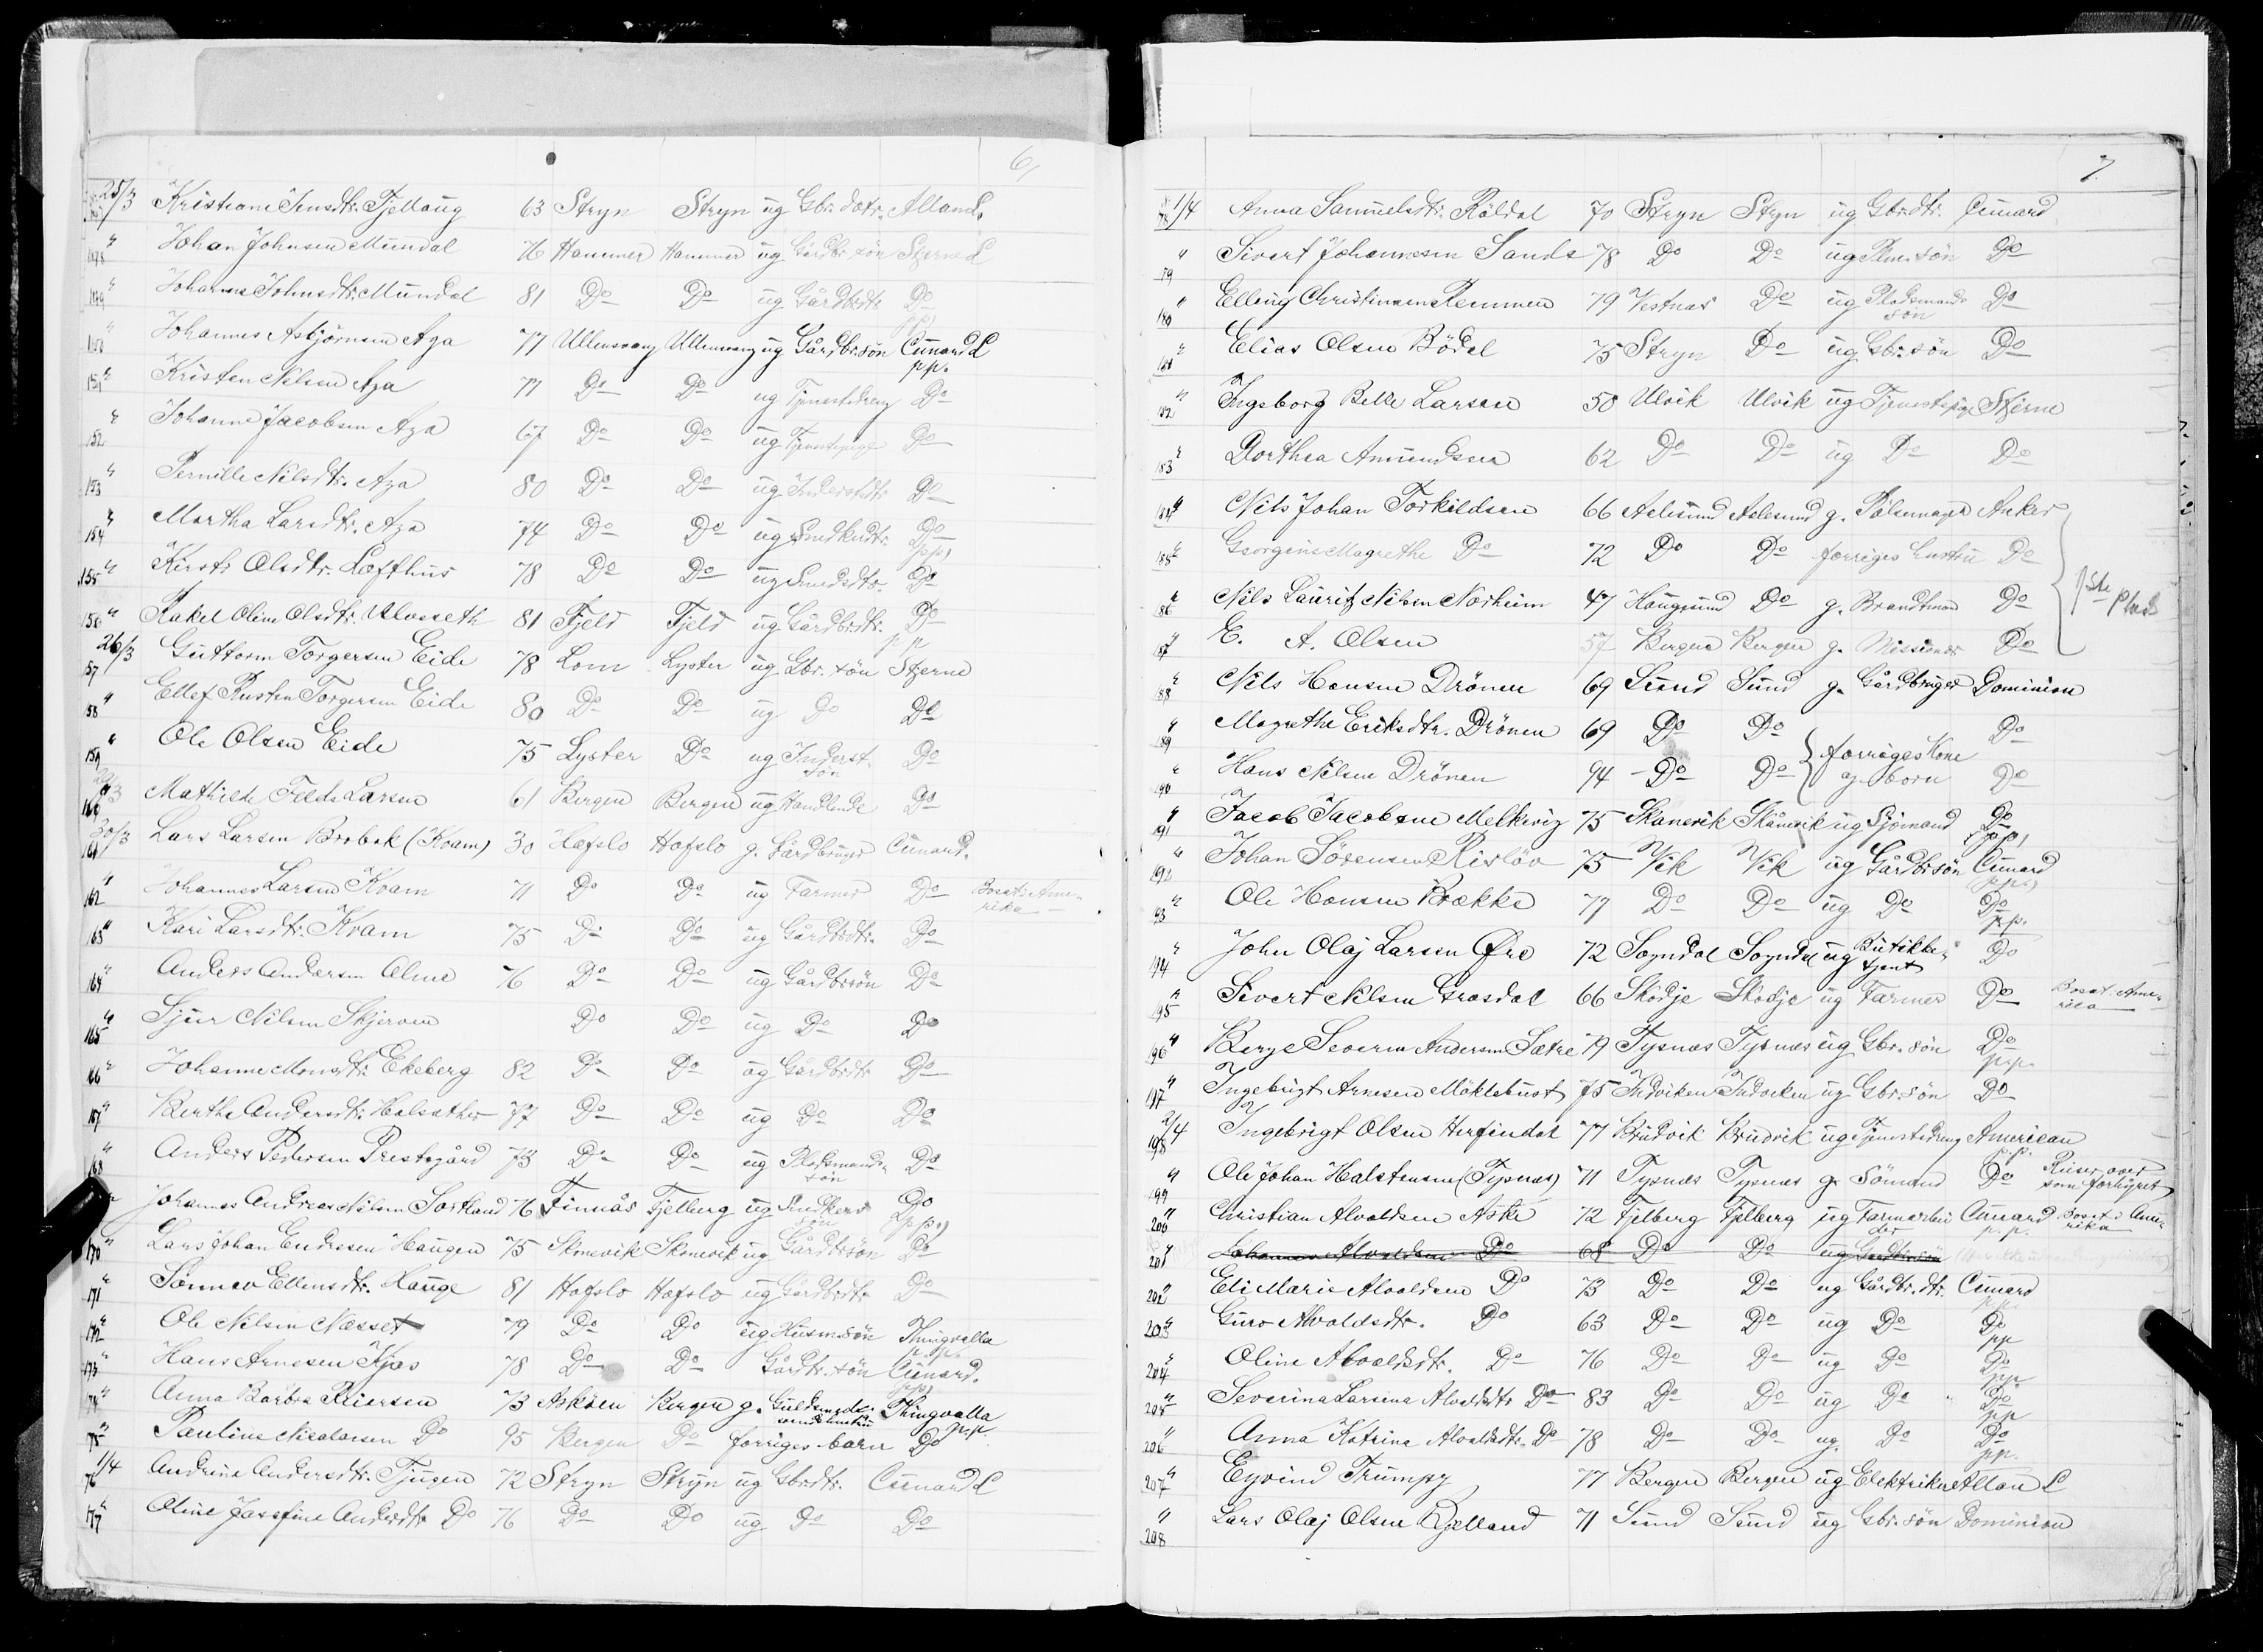 6/
147 25/3 Kristiane Jensdtr. Fjellaug 63 Stryn Stryn ug Gbr. datr. Allan L.
148 " Johan Johnsen Mundal 76 Hammer Hammer ug Gårdbr. søn Stjerne L
149 " Johanne Johnsdtr. Mundal 81 Do Do ug Gårdbrdtr Do
pp,
150 " Johannes Asbjørnsen Aga 77 Ullensvang Ullensvang ug Gårdbr. søn Cunard L
pp.
151 " Kristen Nelsen Aga 71 Do Do ug Tjenestedreng Do
152 " Johanne Jacobsen Aga 67 Do Do ug Tjenestepige Do
153 " Pernille Nilsdtr. Aga 80 Do Do ug Inderstdtr Do
154 " Martha Larsdtr. Aga 74 Do Do ug Snedkerdtr. Do
pp,
155 " Kirsti Olsdtr. Lofthus 78 Do Do ug Smedsdtr. Do
156 " Rakel Oline Olsdtr. Ulveseth 81 Fjeld Fjeld ug Gårdbrdtr. Do
pp
157 26/3 Guttorm Torgersen Eide 78 Lom Lyster ug Gbr. søn Stjerne
58 " Ellef Rusten Torgersen Eide 80 Do Do ug Do Do
159 " Ole Olsen Eide 75 Lyster Do ug Inderst. Do
søn
160 Mathilde Felde Larsen 61 Bergen Bergen ug Handlende Do
161 30/3 Lars Larsen Brobak (Kvam) 30 Hafslo Hafslo g. Gårdbruger Cunard.
162 " Johannes Larsen Kvam 71 Do Do ug Farmer Do Bosat i Ame-
rika
163 " Kari Larsdtr. Kvam 75 Do Do ug Gårdbrdtr. Do
164 " Anders Andersen Alme 76 Do Do ug Gårdbrsøn Do
165 " Sjur Nilsen Skjerven Do Do ug Do Do
166 " Johanne Monsdtr. Ekeberg 82 Do Do ug Gårdbrdtr Do
167 " Berthe Andersdtr. Halsæther 77 Do Do ug Do Do
168 " Anders Pedersen Prestegård 73 Do Do ug Pladsmands- Do
søn
Johannes Andreas Nilsen Sortland 76 Finnås Fjelberg ug Snedkers Do
søn pp,
170 " Lars Johan Endresen Haugen 75 Skonevik Skonevik ug Gårdbrsøn Do
171 " Sønnev Ellensdtr. Hauge 81 Hafslo Hafslo ug Gårdbrdtr Do
172 " Ole Nilsen Næsset 79 Do Do ug Husm. søn Thingvalla
p.p.
173 " Hans Arnesen Kjos 78 Do Do Gårdbr. søn Cunard.
pp,
174 " Anna Barbra Reiersen 73 Askøen Bergen g. Guldsmed- Thingvalla
svends hustru p.p.
175 " Pauline Nicolaisen Do 95 Bergen Do forriges barn Do
76 1/4 Andrine Andersdtr. Tjugen 72 Stryn Stryn ug Gbrdtr. Cunard L
177 " Oline Jossfine Andersdtr Do 76 Do Do ug Do Do
7.
178 1/4 Anna Samuelsdtr. Råldal 70 Stryn Stryn ug Gbrdtr. Cunard
179 " Sivert Johannesen Sande 78 Do Do ug Plm. søn Do
180 " Elling Christiansen Remmen 79 Vestnæs Do ug Pladsmands Do
søn
181 " Elias Olsen Bødal 75 Stryn Do ug Gbr. søn Do
182 " Ingeborg Belle Larsen 50 Ulvik Ulvik ug Tjenestepige Stjerne
183 " Dorthea Amundsen 62 Do Do ug Do Do
184 " Nils Johan Torkildsen 66 Aalesund Aalesund g. Pølsemager Anker
185 " Georgine Magrethe Do 72 Do Do forriges hustru Do
186 " Nils Lauritz Nilsen Norheim 47 Haugesund Do g. Brandtman Do 1ste Plads
187 " E. A. Olsen 57 Bergen Bergen g. Missionær Do
188 " Nils Hansen Drønen 69 Sund Sund g. Gårdbruger Dominion
189 " Magrethe Eriksdtr. Drønen 69 Do Do forriges Kone Do
190 " Hans Nilsen Drønen 94 Do Do og born Do
191 " Jacob Jacobsen Melkevig 75 Skanevik Skånevik ug Sjømand Do
p.p,
192 " Johan Sørensen Risløv 75 Vik Vik ug Gårdbrsøn Cunard
pp,
93 " Ole Hansen Brække 77 Do Do ug Do Do
pp.
194 " John Olaj Larsen Øre 72 Sogndal Sogndal ug Butikbe- Do
tjent
195 " Sivert Nilsen Grasdal 66 Skodje Skodje ug Farmer Do Bosat. Ame-
rica
196 " Berge Severin Andersen Sætre 79 Tysnæs Tysnæs ug Gbr. søn Do
p.p.
197 " Ingebrigt Arnesen Møklebust 75 Indviken Indviken ug Gbr. søn Do
198 2/4 Ingebrigt Olsen Herfindal 77 Bruvik Bruvik ug Tjenestedreng American
p.p.
199 " Ole Johan Halstensen (Tysnæs) 71 Tysnæs Tysnæs g. Sømand Do Reiser over
som forhyret
200 " Christian Alvaldsen Aske 72 Fjelberg Fjelberg ug Farmarbei Cunard Bosat i Ame-
der p.p. rika
201 " Johannes Alvaldsen Do 68 Do Do ug Gårdbr. søn
202 " Eli Marie Alvaldsen Do 73 Do Do ug Gårdbr. dtr. Cunard
pp
203 " Guro Alvaldsdtr. Do 63 Do Do ug Do Do
pp
204 " Oline Alvaldsdtr. Do 76 Do Do ug Do Do
pp
205 " Severina Larsina Alvaldsdtr Do 83 Do Do ug Do Do
pp
206 " Anna Katrina Alvaldsdtr. Do 78 Do Do ug. Do Do
pp.
207 " Eyvind Trumpy 77 Bergen Bergen ug Elektriker Allan L
208 " Lars Olaj Olsen Bjelland 71 Sund Sund ug Gbr. søn Dominion